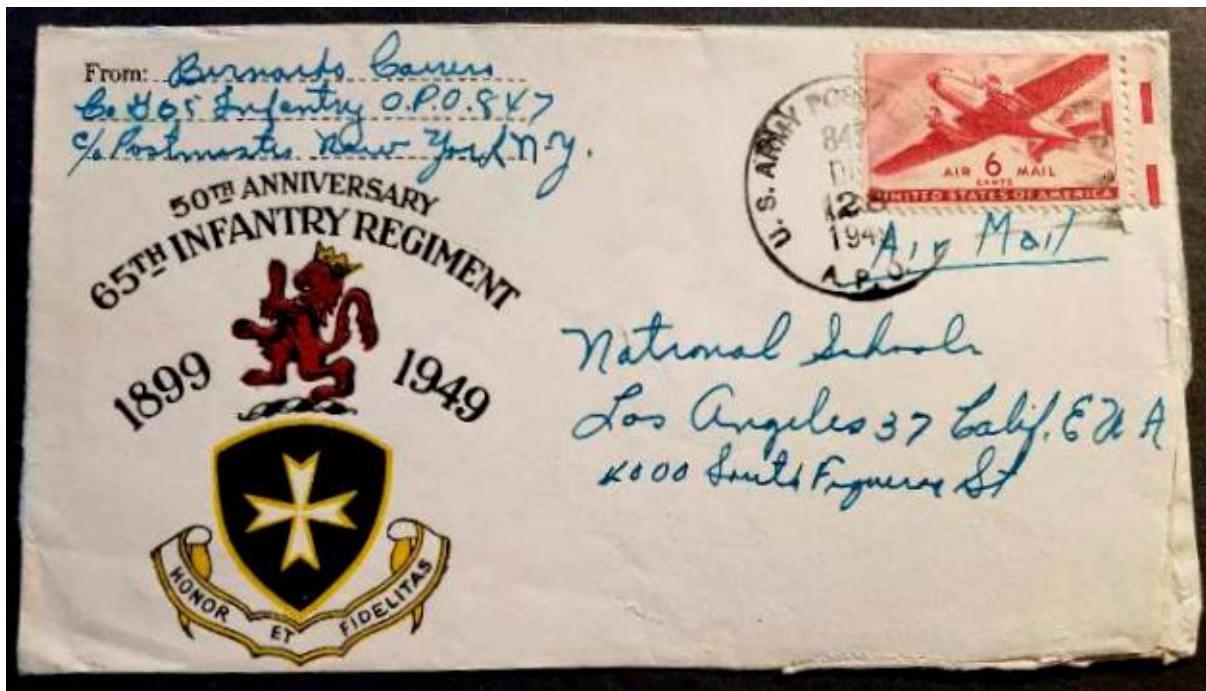 From: Bernardo Carrero
Co G 65 Infantry A.P.O. 847
c/o Postmaster New York N.Y.
50TH ANNIVERSARY
65TH INFANTRY REGIMENT
1899 1949
HONOR ET FIDELITAS
U. S. ARMY
12
1949
A. P. O.
AIR 6 MAIL
CENTS
UNITED STATES OF AMERICA
Air Mail
National Schools
Los Angeles 37 Calif. E U A
4000 South Figueroa St